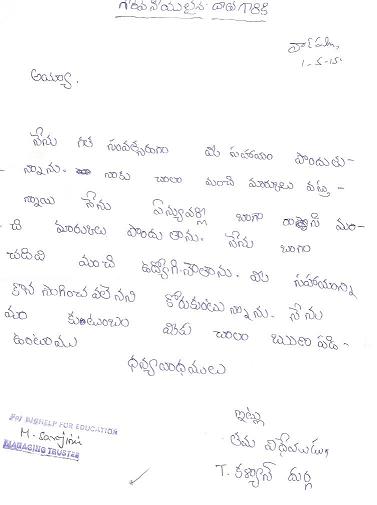 గౌరవనీయులైన దాత గారికి
1-5-15.
అయ్యా,
నేను గత సంవత్సరంగా మీ సహాయం పొందుతు-
న్నాను. నాకు చాలా మంచి మార్కులు వస్తు-
న్నాయి నేను బాగా మం-
చి మార్కులు పొందుతాను. నేను బాగా
చదివి మంచి ఉద్యోగి నౌతాను. మీ సహాయాన్ని
కొన సాగించ వలెనని కోరుకుంటున్నాను. నేను
మా కుటుంబం మీకు చాలా ఋణపడి-
ఉంటాము
ధన్యవాదములు
ఇట్లు
తమ విధేయుడు,
T. కళ్యాణ్ దుర్గ
For BUSHELP FOR EDUCATION
M. Sarojini
MANAGING TRUSTEE